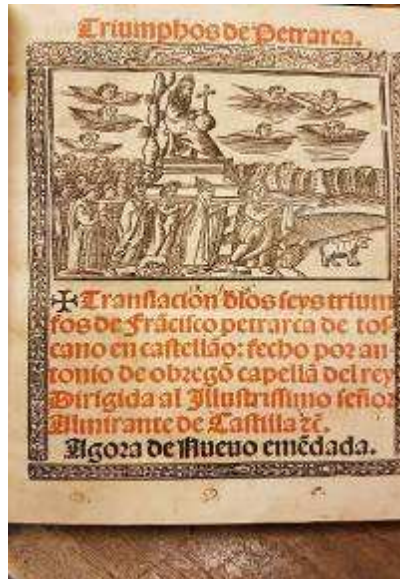 Triumphos de Petrarca.
✠ Translacion dlos seys trium
fos de Frãcisco petrarca de tos
cano en castellão: fecho por an
tonio de obregõ capellã del rey
Dirigida al Illustrissimo señor
Almirante de Castilla ⁊c̃.
Agora de Nueuo emẽdada.